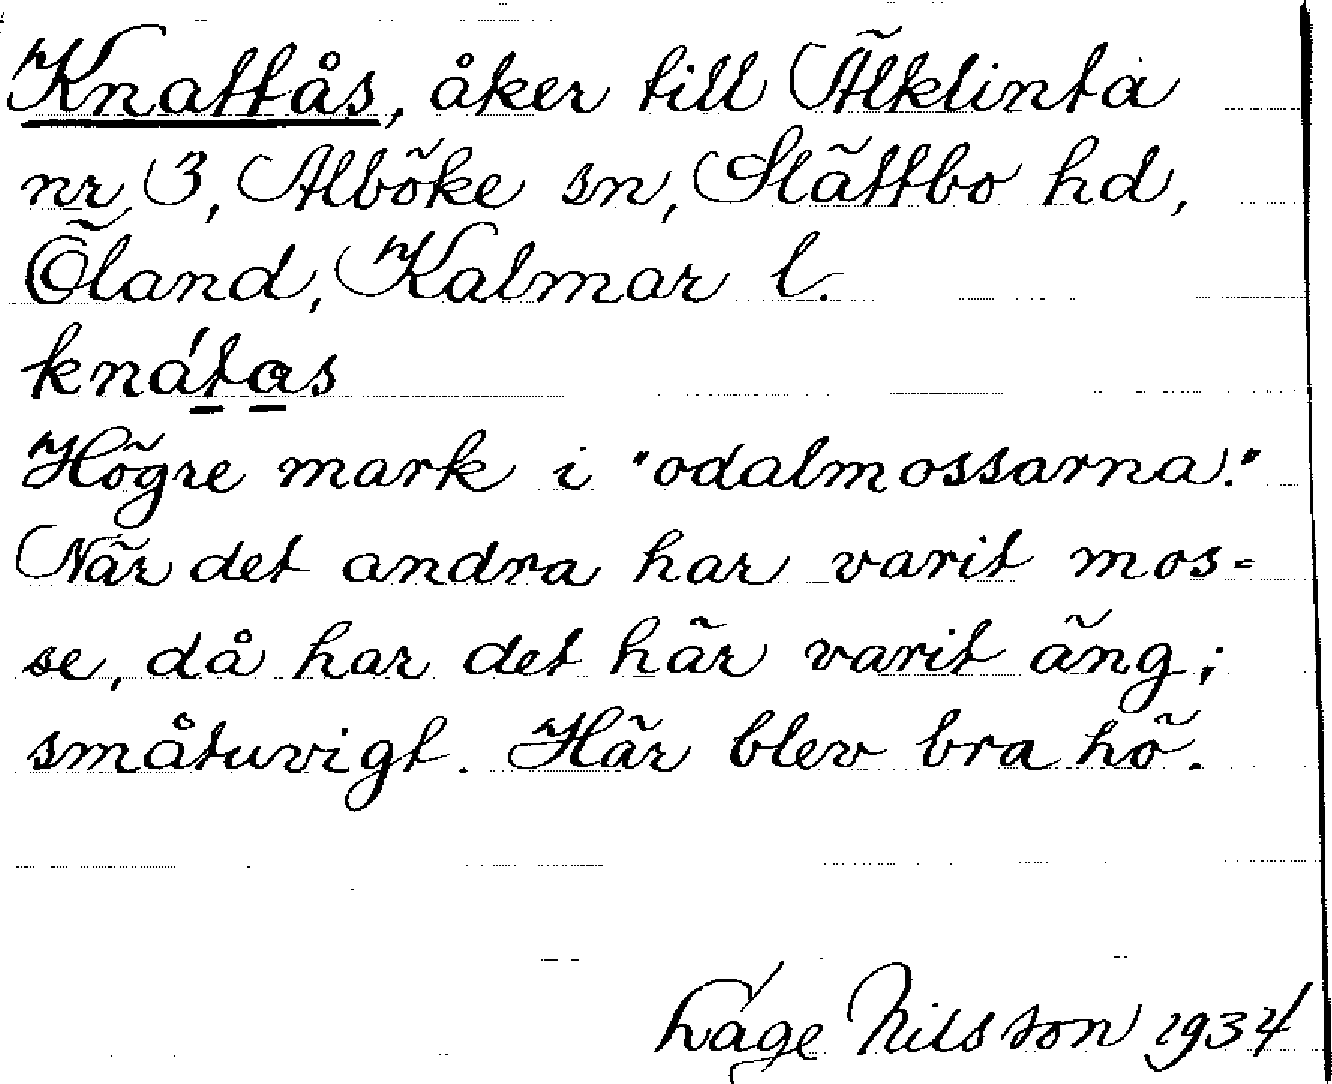 Knattås, åker till Älklinta
nr 3, Alböke sn, Slättbo hd,
Öland, Kalmar l.
knátas
Högre mark i "odalmossarna".
När det andra har varit mos=
se, då har det här varit äng;
småtuvigt. Här blev bra hö.
Låge Nilsson 1934